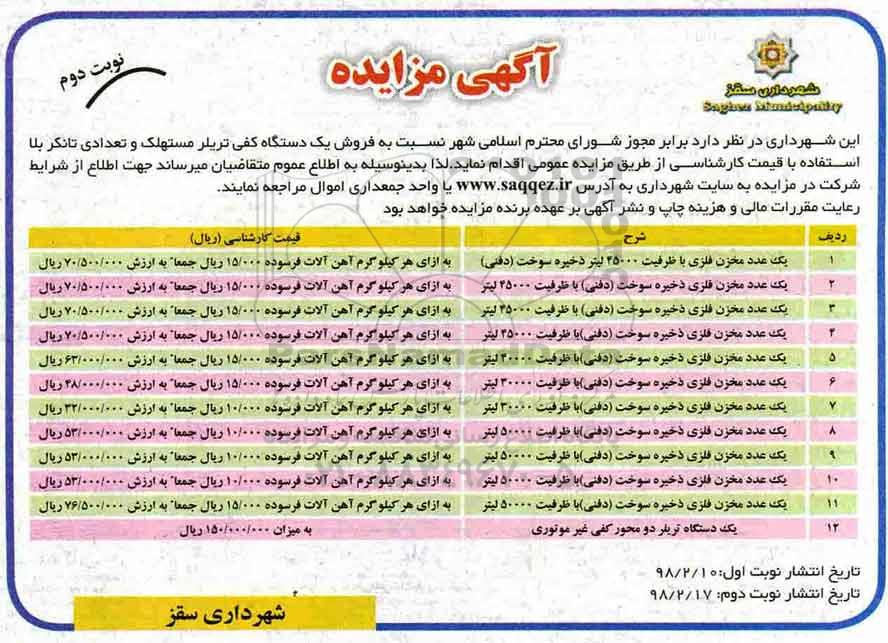 شهرداری سقز
Saghez Municipality
آگهی مزایده
نوبت دوم
این شهرداری در نظر دارد برابر مجوز شورای محترم اسلامی شهر نسبت به فروش یک دستگاه کفی تریلر مستهلک و تعدادی تانکر بلا
استفاده با قیمت کارشناسی از طریق مزایده عمومی اقدام نماید.لذا بدینوسیله به اطلاع عموم متقاضیان میرساند جهت اطلاع از شرایط
شرکت در مزایده به سایت شهرداری به آدرس www.saqqez.ir یا واحد جمعداری اموال مراجعه نمایند.
رعایت مقررات مالی و هزینه چاپ و نشر آگهی بر عهده برنده مزایده خواهد بود
ردیف شرح قیمت کارشناسی (ریال)
۱ یک عدد مخزن فلزی با ظرفیت ۴۵۰۰۰ لیتر ذخیره سوخت (دفنی) به ازای هر کیلو گرم آهن آلات فرسوده ۱۵/۰۰۰ ریال جمعاً به ارزش ۷۰/۵۰۰/۰۰۰ ریال
۲ یک عدد مخزن فلزی ذخیره سوخت (دفنی) با ظرفیت ۴۵۰۰۰ لیتر به ازای هر کیلو گرم آهن آلات فرسوده ۱۵/۰۰۰ ریال جمعاً به ارزش ۷۰/۵۰۰/۰۰۰ ریال
۳ یک عدد مخزن فلزی ذخیره سوخت (دفنی)با ظرفیت ۴۵۰۰۰ لیتر به ازای هر کیلو گرم آهن آلات فرسوده ۱۵/۰۰۰ ریال جمعاً به ارزش ۷۰/۵۰۰/۰۰۰ ریال
۴ یک عدد مخزن فلزی ذخیره سوخت (دفنی)با ظرفیت ۴۵۰۰۰ لیتر به ازای هر کیلو گرم آهن آلات فرسوده ۱۵/۰۰۰ ریال جمعاً به ارزش ۷۰/۵۰۰/۰۰۰ ریال
۵ یک عدد مخزن فلزی ذخیره سوخت (دفنی)با ظرفیت ۴۰۰۰۰ لیتر به ازای هر کیلو گرم آهن آلات فرسوده ۱۵/۰۰۰ ریال جمعاً به ارزش ۶۳/۰۰۰/۰۰۰ ریال
۶ یک عدد مخزن فلزی ذخیره سوخت (دفنی)با ظرفیت ۳۰۰۰۰ لیتر به ازای هر کیلو گرم آهن آلات فرسوده ۱۵/۰۰۰ ریال جمعاً به ارزش ۴۸/۰۰۰/۰۰۰ ریال
۷ یک عدد مخزن فلزی ذخیره سوخت (دفنی)با ظرفیت ۳۰۰۰۰ لیتر به ازای هر کیلو گرم آهن آلات فرسوده ۱۰/۰۰۰ ریال جمعاً به ارزش ۳۲/۰۰۰/۰۰۰ ریال
۸ یک عدد مخزن فلزی ذخیره سوخت (دفنی)با ظرفیت ۵۰۰۰۰ لیتر به ازای هر کیلو گرم آهن آلات فرسوده ۱۰/۰۰۰ ریال جمعاً به ارزش ۵۳/۰۰۰/۰۰۰ ریال
۹ یک عدد مخزن فلزی ذخیره سوخت (دفنی)با ظرفیت ۵۰۰۰۰ لیتر به ازای هر کیلو گرم آهن آلات فرسوده ۱۰/۰۰۰ ریال جمعاً به ارزش ۵۳/۰۰۰/۰۰۰ ریال
۱۰ یک عدد مخزن فلزی ذخیره سوخت (دفنی)با ظرفیت ۵۰۰۰۰ لیتر به ازای هر کیلو گرم آهن آلات فرسوده ۱۰/۰۰۰ ریال جمعاً به ارزش ۵۳/۰۰۰/۰۰۰ ریال
۱۱ یک عدد مخزن فلزی ذخیره سوخت (دفنی)با ظرفیت ۵۰۰۰۰ لیتر به ازای هر کیلو گرم آهن آلات فرسوده ۱۵/۰۰۰ ریال جمعاً به ارزش ۷۶/۵۰۰/۰۰۰ ریال
۱۲ یک دستگاه تریلر دو محور کفی غیر موتوری به میزان ۱۵۰/۰۰۰/۰۰۰ ریال
تاریخ انتشار نوبت اول:۹۸/۲/۱۰
تاریخ انتشار نوبت دوم: ۹۸/۲/۱۷
شهرداری سقز